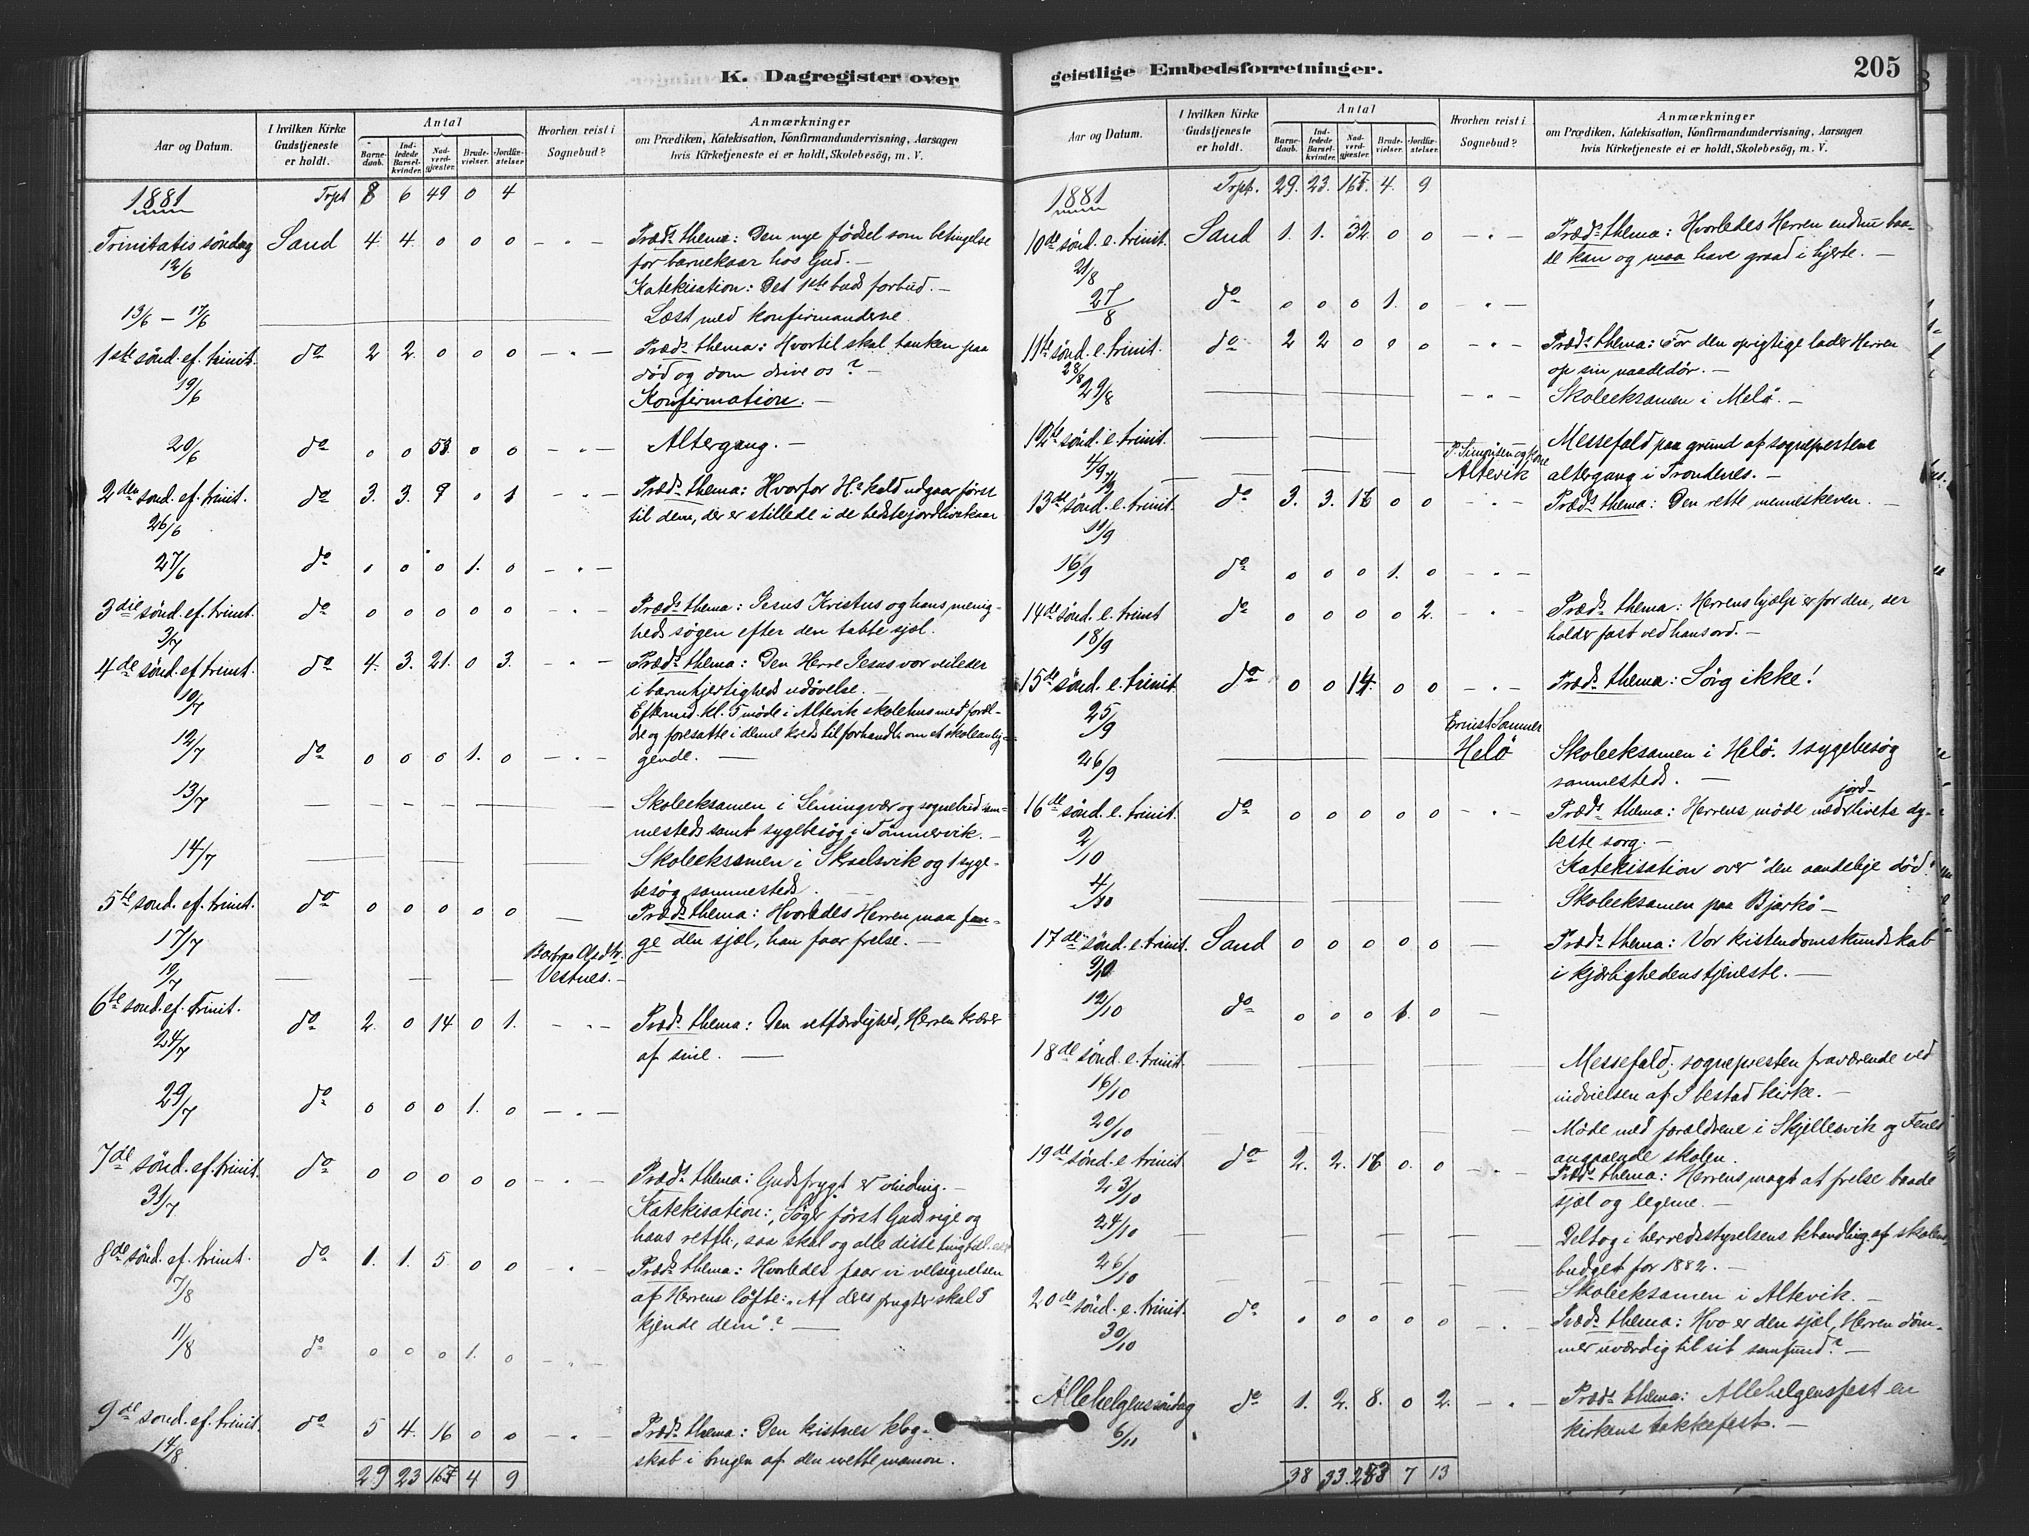 K. Dagregister over
Aar og Datum.
I hvilken Kirke Gudstjeneste er holdt.
Antal
Barnedaab.
Indledede Barselkvinder.
Nadverdgjester.
Brudevielser.
Jordfæstelser
Hvorhen reist i Sognebud?
Anmærkninger
om Prædiken, Katekisation, Konfirmandundervisning, Aarsagen
hvis Kirketjeneste ei er holdt, Skolebesøg, m. V.
1881 Trpt 8 6 49 0 4
Trinitatis søndag Sand 4 4. 0 0 0 - " - Præds thema: Den nye fødsel som betingelse
12/6 for barnekaar hos Gud. -
Katekisation: Det 1ste buds forbud. -
13/6 - 17/6 Læst med konfirmanderne.
1ste sönd. ef. trinit. do 2 2. 0 0 0 - " - Præds thema: Hvortil skal tanken paa
19/6 död og dom drive os? -
Konfirmation. -
20/6 do 0 0 53 0 0 - " - Altergang. -
2den sönd. ef. trinit. do 3. 3. 9 0 1 - " - Præds thema: Hvorfor Hs kald udgaar først
26/6 til dem, der er stillede i de bedste jordlivskaar
27/6 do 0 0 0 1. 0 - " -
3die sönd. ef. trinit. do 0 0 0 0 0 - " - Præds thema: Jesus Kristus og hans menig-
3/7 heds søgen efter den tabte sjæl.
4de sönd. ef. trinit. do 4. 3. 21. 0 3. - " - Præds thema: Den Herre Jesus vor veileder
10/7 i barmhjertigheds udøvelse. -
Eftermid. kl. 5 møde i Altevik skolehus med foræl-
dre og foresatte i denne kreds til forhandl. om et skoleanlig-
12/7 do 0 0 0 1. 0 - " - gende. -
13/7 Skoleeksamen i Leiningvær og sognebud sam-
mesteds samt sygebesøg i Tömmervik. -
14/7 Skoleeksamen i Skraalsvik og 1 syge-
besøg sammesteds. -
5te sönd. ef. trinit. do 0 0 0 0 0 - Præds thema: Hvorledes Herren maa fan-
17/7 ge den sjæl, han faar frelse. -
19/7 Vestnes. -
6te sönd. ef. Trinit. do 2. 0 14 0 1. - " - Præds thema: Den retfærdighed, Herren kræver
24/7 af sine. -
29/7 do 0 0 0 1. 0 - " -
7de sönd. ef. trinit. do 0 0 0 0 0 - " - Præds thema: Gudsfrygt er vinding. -
31/7 Katekisation: „Søger först Guds rige og
hans retfh., saa skal og alle disse ting
8de sönd. ef. trinit. do 1. 1. 5. 0 0 " - Præds thema: Hvorledes faar vi velsignelsen
7/8 af Herrens löfte: „Af deres frugter skal I
kjende dem"? -
11/8 do 0 0 0 1. 0 - " -
9de sönd. ef. trinit. do 5 4. 16 0 0 - " - Præds thema: Den kristnes klog-
14/8 skab i brugen af den urette mamon.
29 23 167 4 9
geistlige Embedsforretninger.
205
Aar og Datum.
I hvilken Kirke Gudstjeneste er holdt.
Antal
Barnedaab.
Indledede Barselkvinder.
Nadverdgjester.
Brudevielser.
Jordfæstelser.
Hvorhen reist i Sognebud?
Anmærkninger
om Prædiken, Katekisation, Konfirmandundervisning, Aarsagen
hvis Kirketjeneste ei er holdt, Skolebesøg, m. V.
1881 Trpt. 29. 23. 167. 4. 9
10de sönd. e. trinit. Sand 1. 1. 32. 0 0 - " - Præds thema: Hvorledes Herren endnu baa-
21/8 de kan og maa have graad i hjerte. -
27/8 do 0 0 0 1. 0 - " -
11te sönd. e. trinit. do 2 2 0 0 0 - " - Præds thema: For den oprigtige lader Herren
28/8 op sin naadedør. -
29/8 - " - Skoleeksamen i Melö. -
12te sönd. e. trinit. Messefald paa grund af sogneprestens
4/9 altergang i Trondenes. -
7/9 Altevik
13de sönd. e. trinit. do 3. 3. 16 0 0 " - Præds thema: Den rette menneskeven. -
11/9
16/9 do 0 0 0 1. 0 - " -
14de sönd. e. trinit do 0 0 0 0 2. - " - Præds thema: Herrens hjælp er for den, der
18/9 holder fast ved hans ord. -
15de sönd. e. trinit. do 0 0 14. 0 0 - " - Præds thema: Sörg ikke!
25/9
26/9 Helö Skoleeksamen i Helö. 1 sygebesøg
sammesteds. -
16de sönd. e. trinit. do 0 0 0 0 0 - " - Præds thema: Herrens møde ved jordlivets dy-
2/10 beste sorg. -
Katekisation over "den aandelige död".
4/10 Skoleeksamen paa Bjarkö -
17de sönd. e. trinit. Sand 0 0 0 0 0 - Præds thema: Vor kristendomskundskab
9/10 i kjærlighedens tjeneste. -
12/10 do 0 0 0 1. 0 -
18de sönd. e. trinit. Messefald; sognepresten fraværende ved
16/10 indvielsen af Ibestad kirke. -
20/10 Møde med forældrene i Skjellesvik og Fenes
angaaende skolen.
19de sönd. e. trinit do 2. 2. 16 0. 0 - " - Præds thema: Herrens magt at frelse baade
23/10 sjæl og legeme. -
24/10 Deltog i herredsstyrelsens behandling af skolens
budget for 1882. -
26/10 Skoleeksamen i Altevik. -
20de sönd. e. trinit. do 0 0 0 0 0 - " - Præds thema: Hvo er den sjæl, Herren döm-
30/10 mer uværdig til sit samfund? -
Allehelgenssöndag do 1. 2. 8. 0 2. - " - Præds thema: Allehelgensfest en
6/11 kirkens takkefest. -
38 33. 7 13